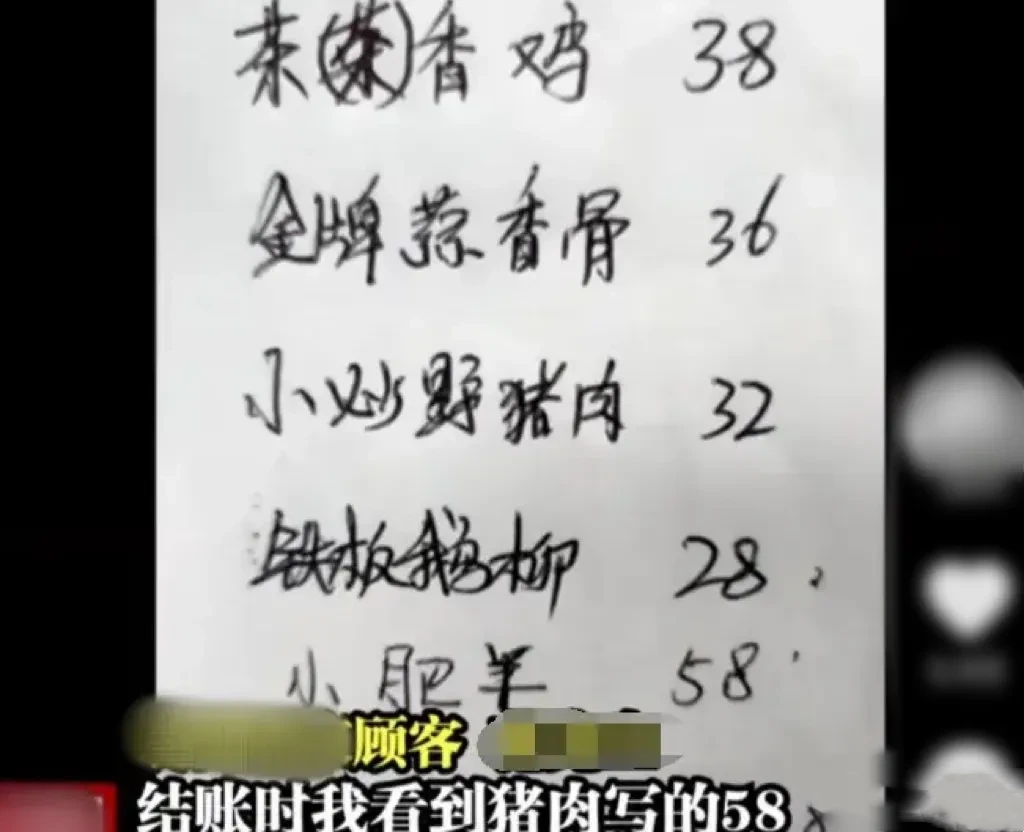 茶(茶)香鸡 38
金牌蒜香骨 36
小炒野猪肉 32
铁板鹅柳 28
小肥羊 58
顾客
结账时我看到猪肉写的58